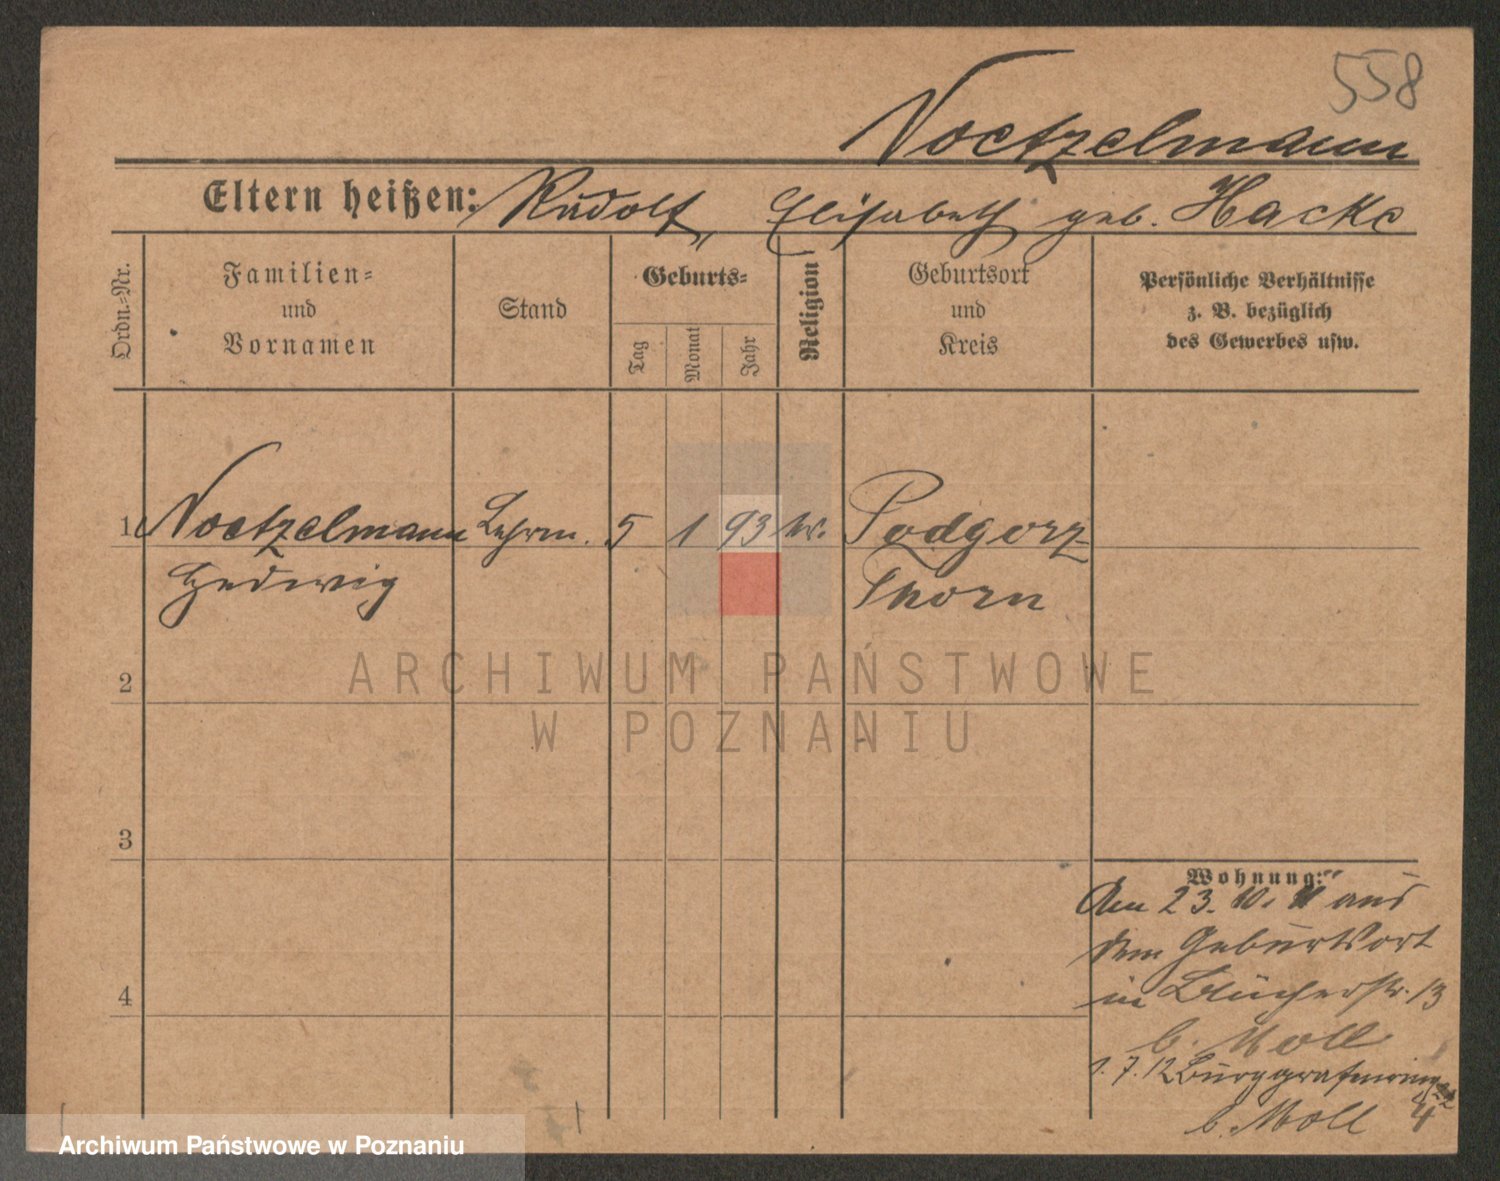 558
Noetzelmann
Eltern heißen: Rudolf, Elisabeth geb. Hacke
Ordn.-Nr.
Familien-
und
Vornamen
Stand
Geburts-
Tag
Monat
Jahr
Religion
Geburtsort
und
Kreis
Persönliche Verhältnisse
z. B. bezüglich
des Gewerbes usw.
1 Noetzelmann Lehrin. 5 1 93 Podgorz
Hedwig Thorn
2
3
4
Wohnung:
Am 23. 10. 11 aus
dem Geburtsort
in Blücherstr. 13
b. Moll
1. 7. 12 Burggrafenring
b. Moll 4
ARCHIWUM PAŃSTWOWE
W POZNANIU
Archiwum Państwowe w Poznaniu